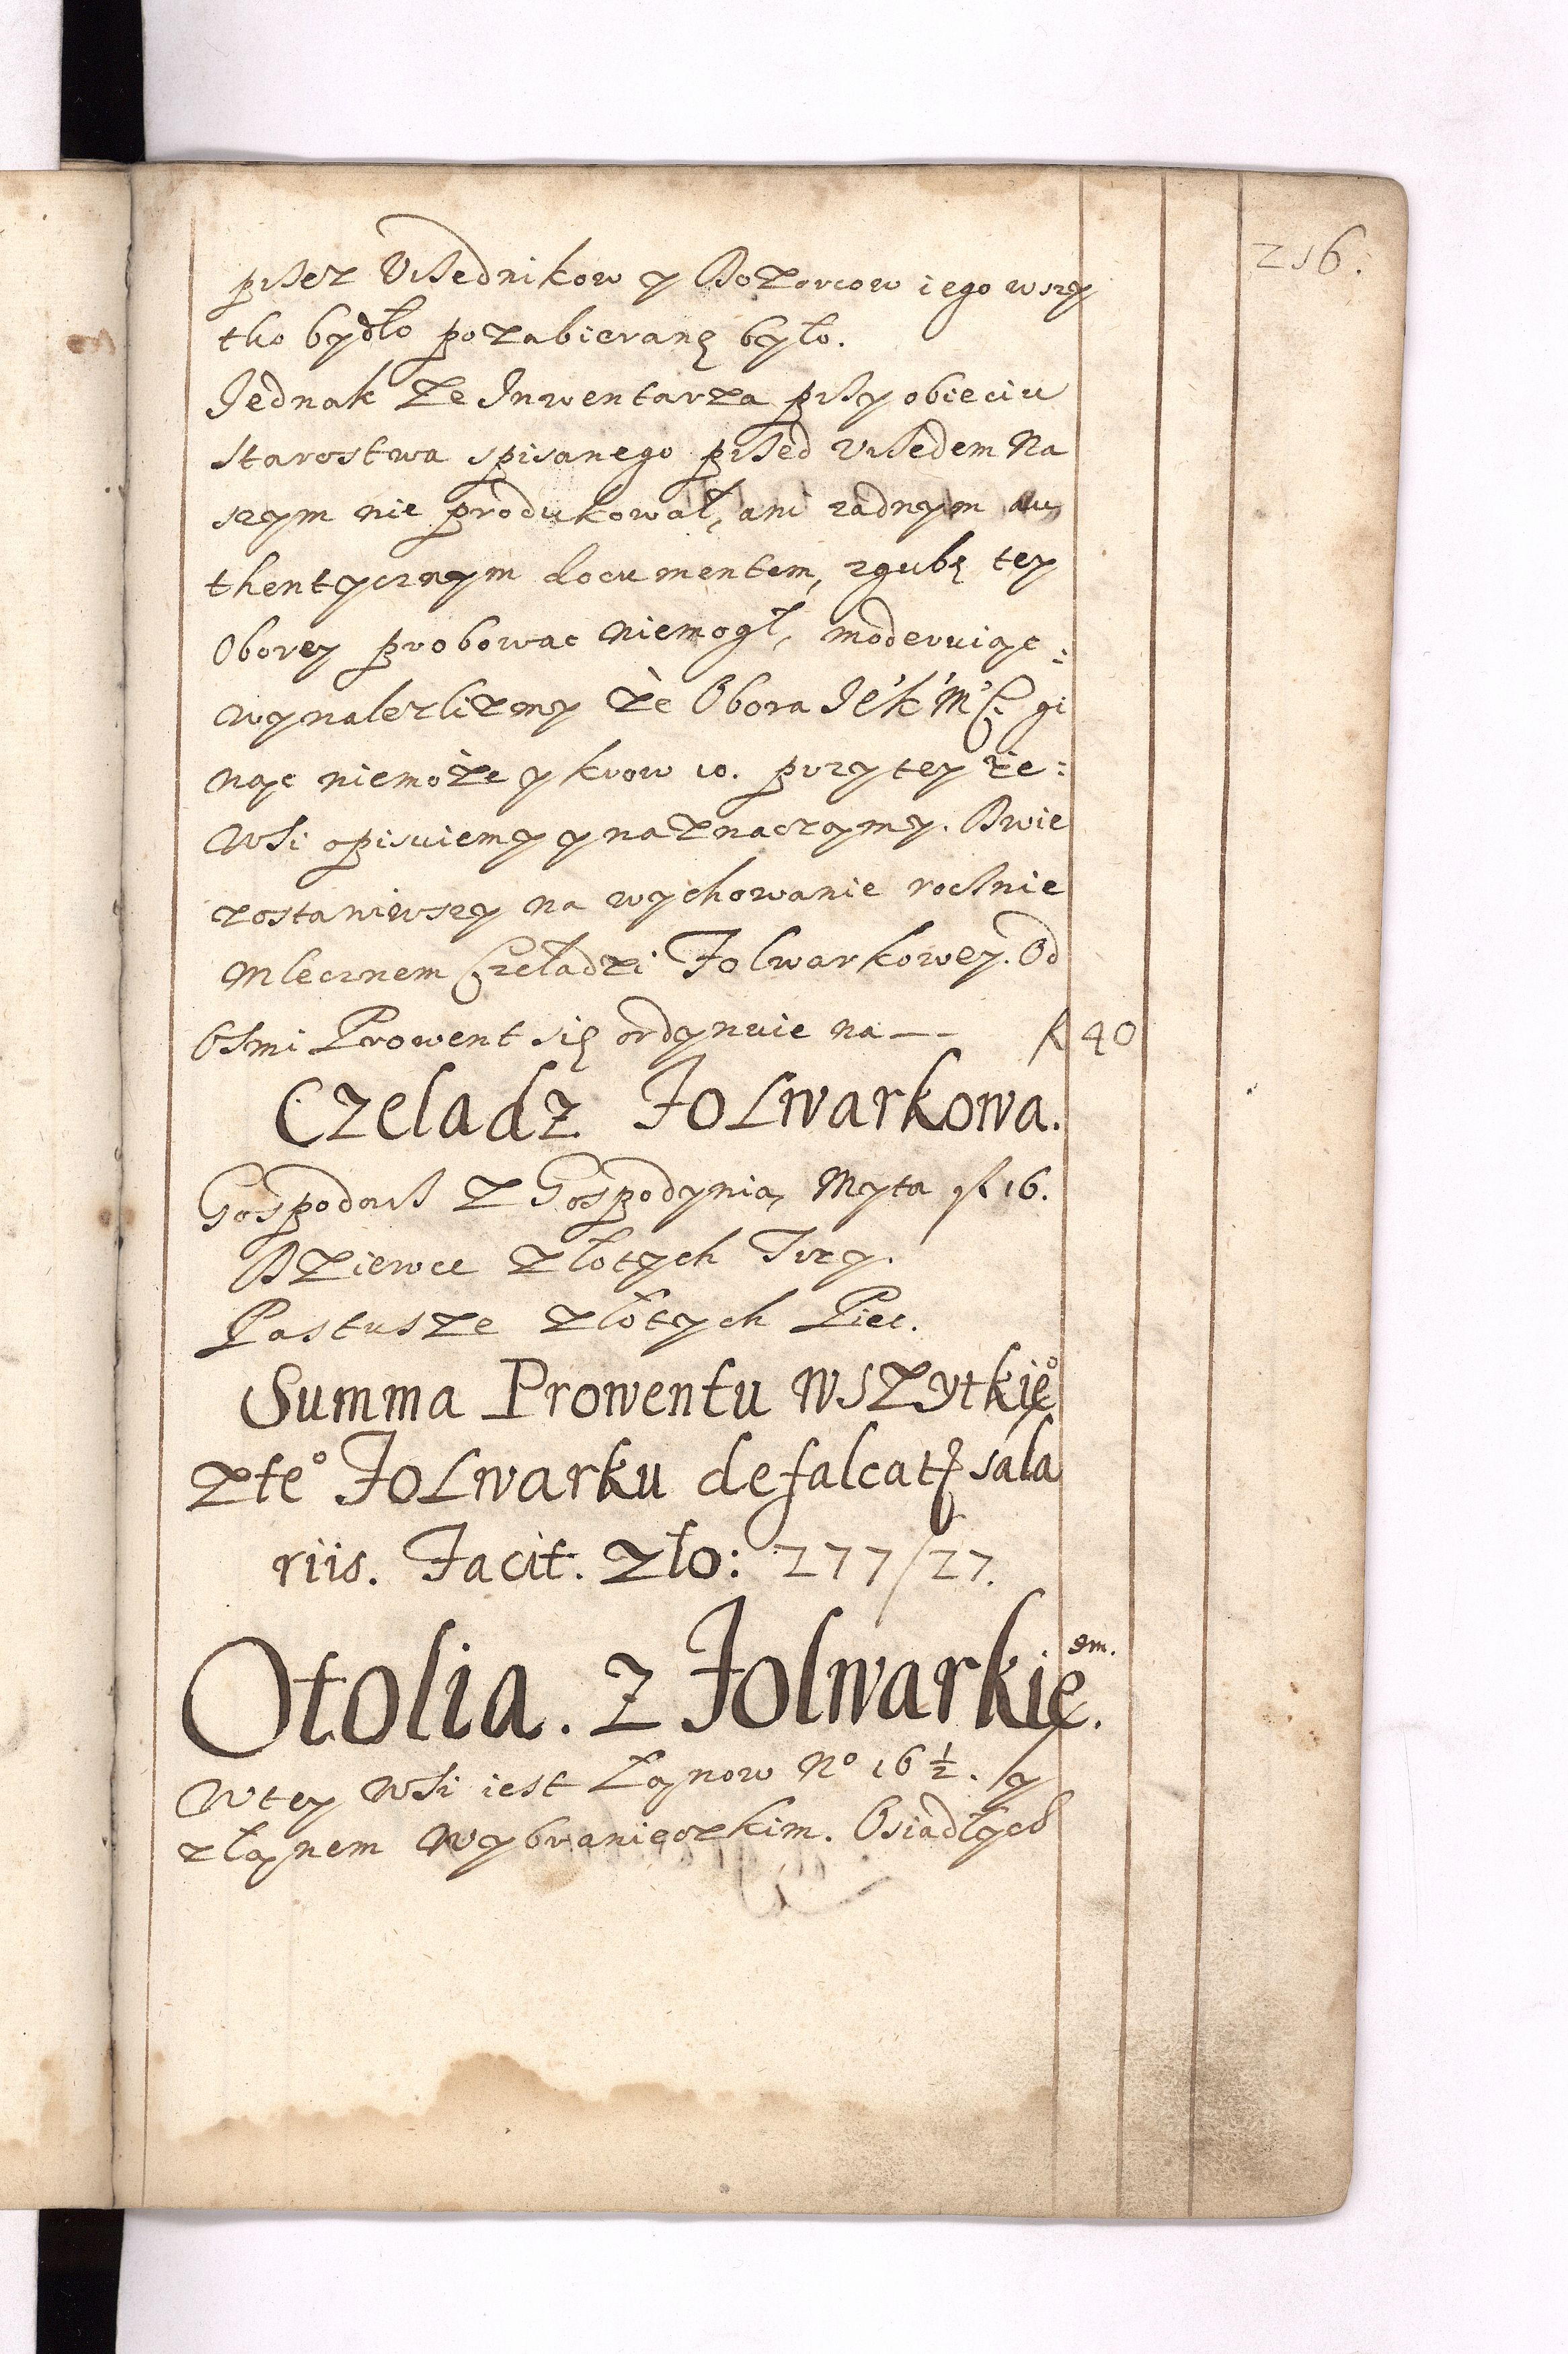 216.
przez Vrzednikow y Dozorcow iego wszy
tko bydło pozabieranę było.
Jednak ze Inwentarza przy obieciu
Starostwa spisanego przed Vrzedem Na
szym nie produkował, ani zadnym au
thentycznym documentem, zgubę tey
Obory probowac niemogł, moderuiąc:
wynalezlizmy że Obora Jek Mści gi
nąc niemoże y krow 10. przy tey że:
Wsi opisuiemy y naznaczymy. Dwie
zostawiwszy na wychowanie rocznie
Mlecznem Czeladzi Folwarkowey. Od
Osmi Prowent się ordynuie na — — fl 40
Czeladz Folwarkowa.
Gospodarz z Gospodynią, Myta fl 16.
Dziewce złotych Trzy.
Pastusze złotych Piec.
Summa Prowentu wszytkieo
zteo Folwarku defalcatis sala
riis. Facit. zło: 277/27.
Otolia. z Folwarkiem.
Wtey Wsi iest Łanow No 16 ½. y
złanem Wybranieczkim. Osiadłych